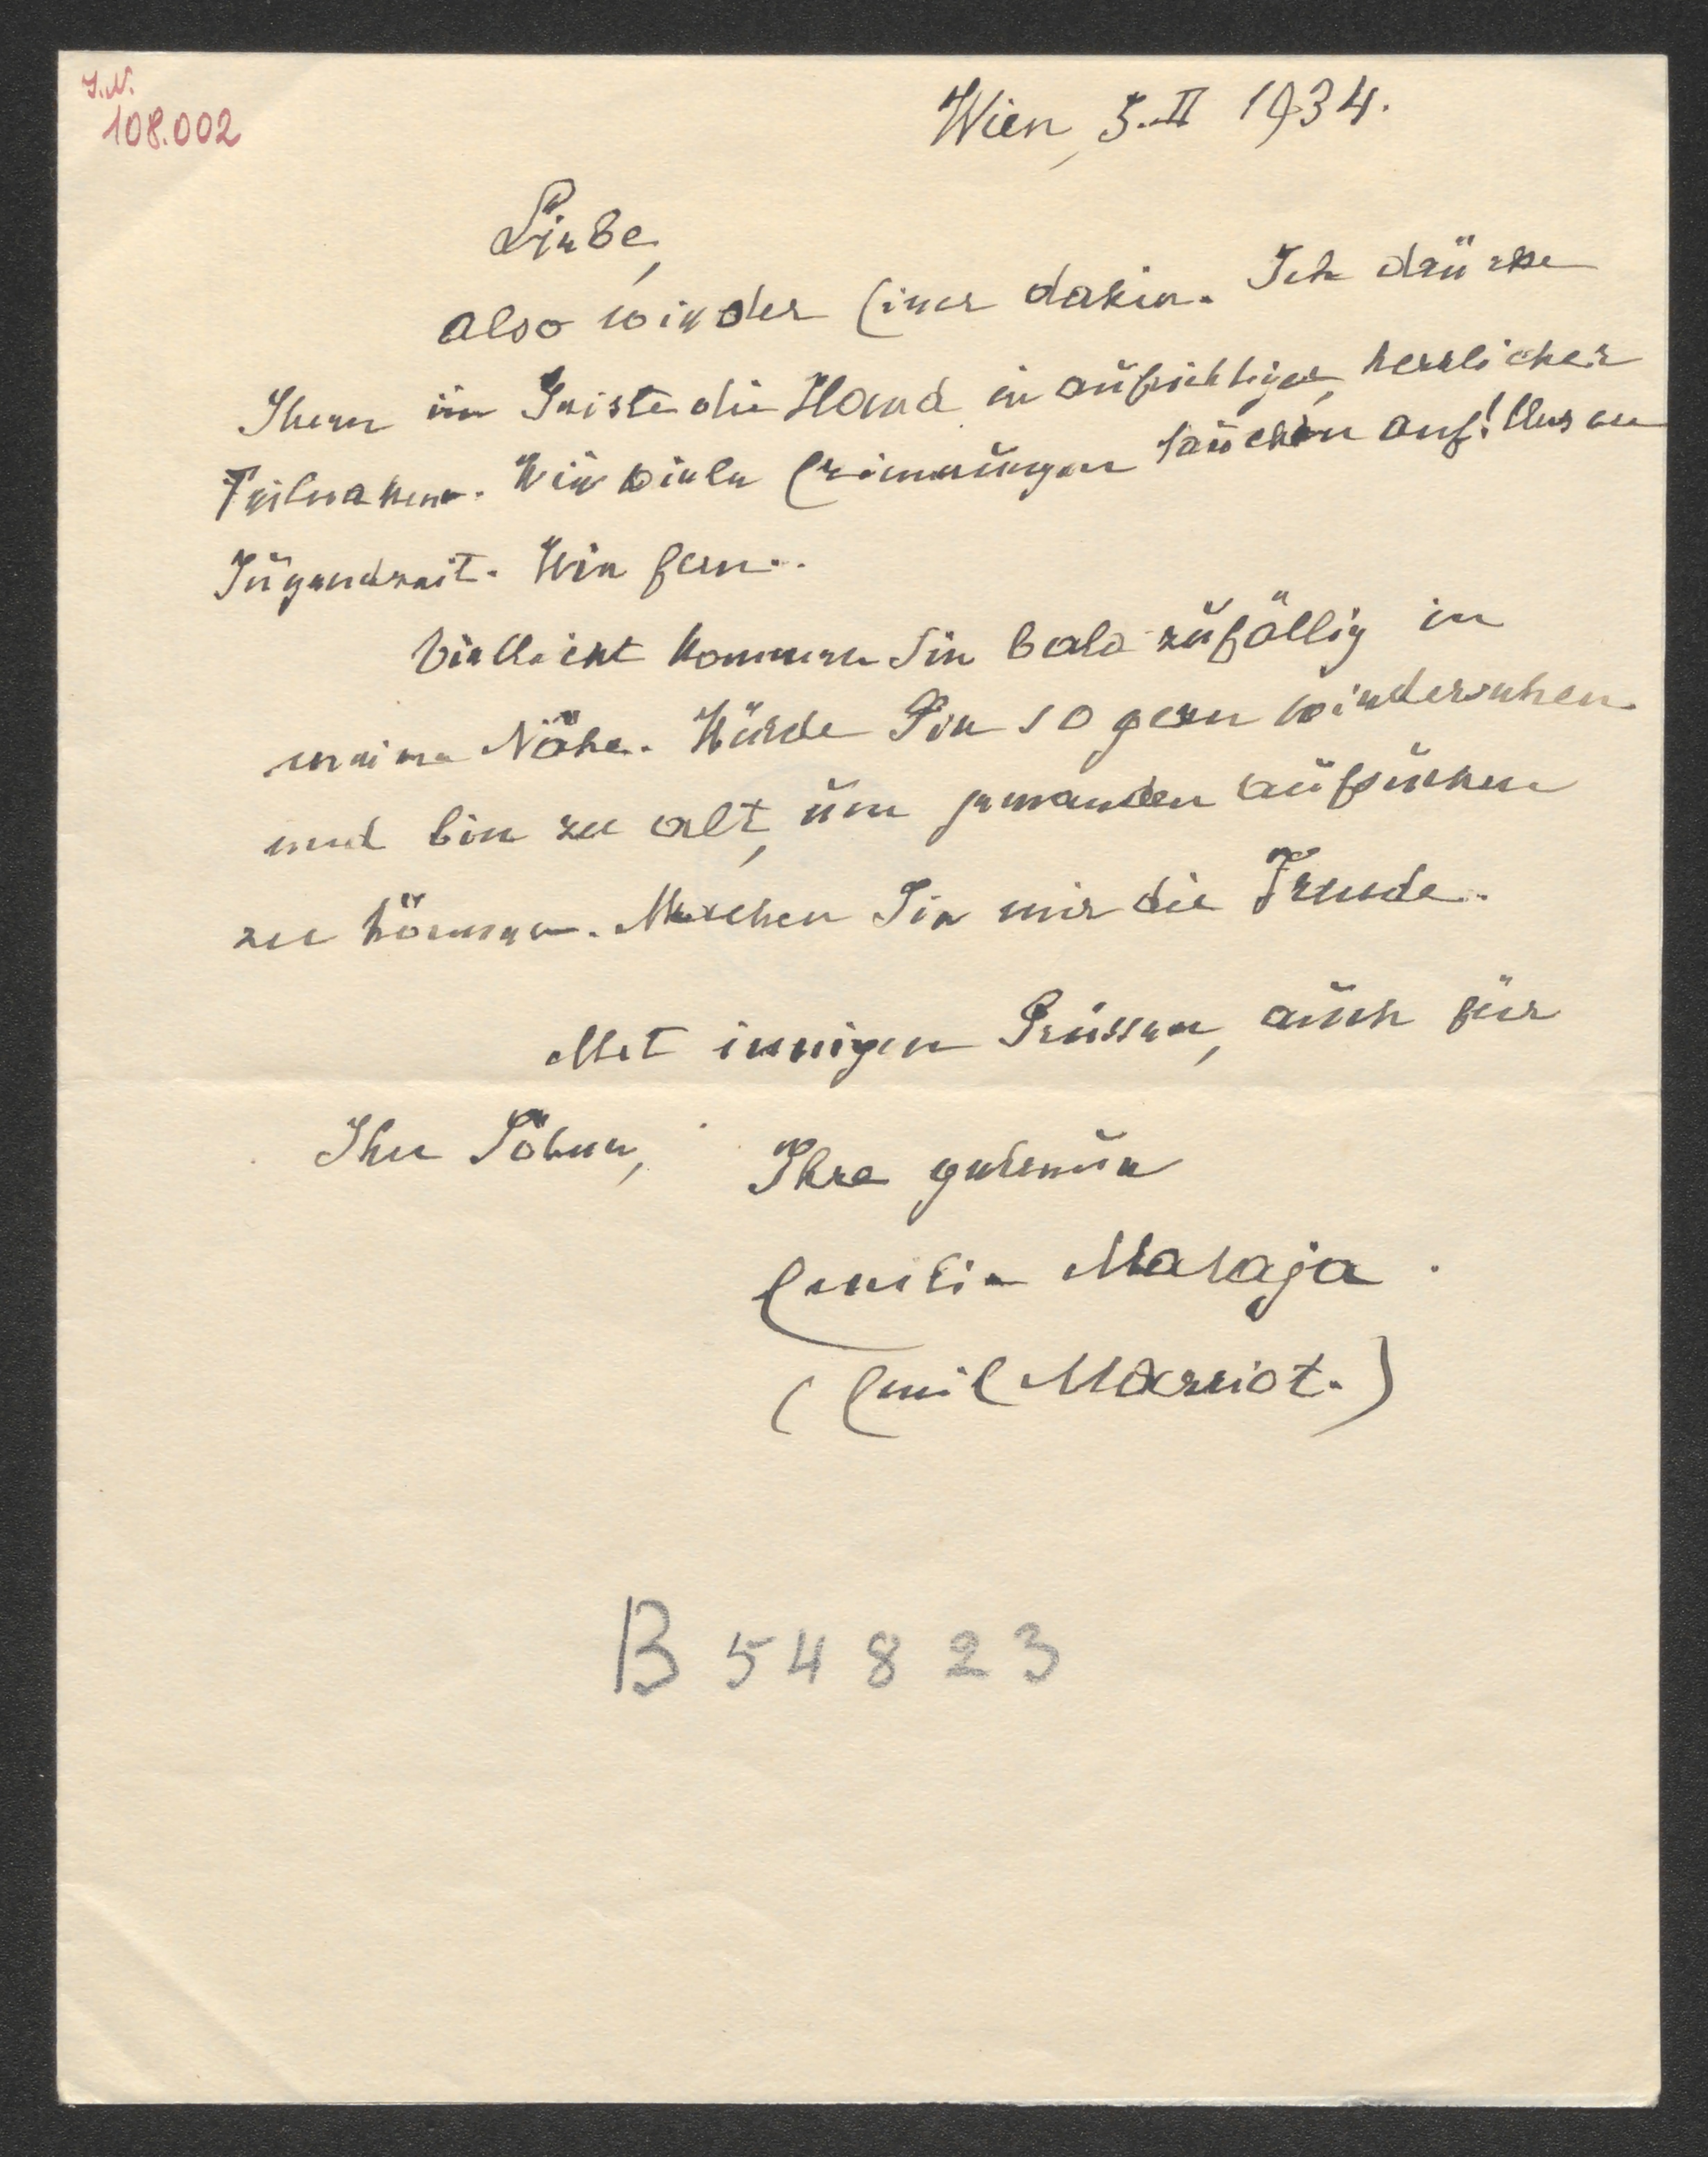 I.N.
108.002
Wien, 5.II 1934.
Liebe,
also wieder Einer dahin. Ich drücke
Ihnen im Geiste die Hand in aufrichtiger, herzlicher
Teilnahme. Wie viele Erinnerungen tauchen auf! Unsere
Jugendzeit. Wie fern..
Vielleicht kommen Sie bald zufällig in
meine Nähe. Würde Sie so gern wiedersehen
und bin zu alt, um jemanden aufsuchen
zu können. Machen Sie mir die Freude.
Mit innigen Grüssen, auch für
Ihre Söhne,
Ihre getreue
Emilie Mataja.
(Emil Marriot.)
B 54823